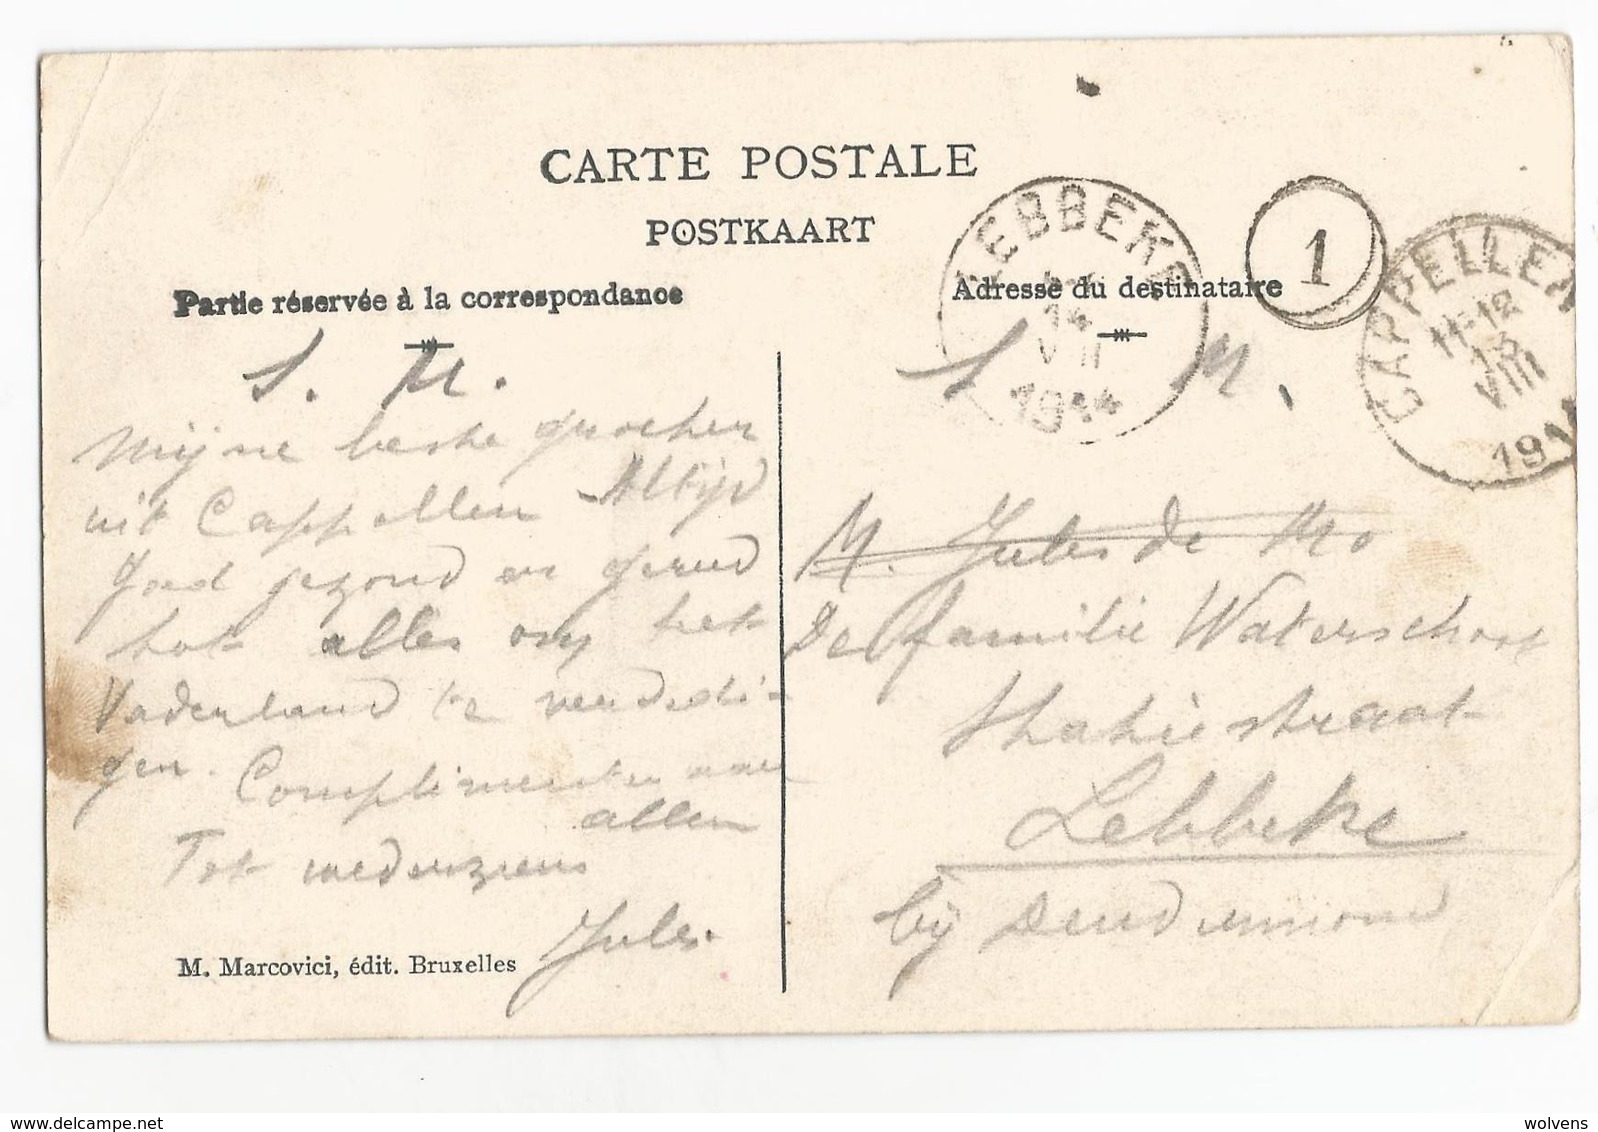 CARTE POSTALE
POSTKAART
Partie réservée à la correspondance
Adresse du destinataire
LEBBEKE
14
VIII
1914
1
CAPPELLEN
11-12
13
VIII
191
S. M.
Mijne beste groeten
uit Cappellen Altijd
goed gezond en gereed
tot alles om het
Vaderland te verdedi-
gen. Complimenten aan
allen
Tot wederziens
Jules.
M. Marcovici, édit. Bruxelles
S. M.
M. Jules de
De familie Waterschoot
straat
Lebbeke
bij Dendermond
delcampe.net
wolvens